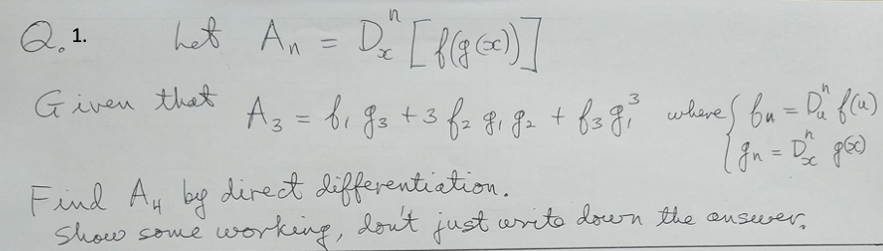 Q.1. Let Aₙ = Dₓⁿ [f(g(x))]
Given that A₃ = f₁ g₃ + 3 f₂ g₁ g₂ + f₃ g₁³ where { fₙ = Dᵤⁿ f(u)
gₙ = Dₓⁿ g(x)
Find A₄ by direct differentiation.
Show some working, don't just write down the answer.